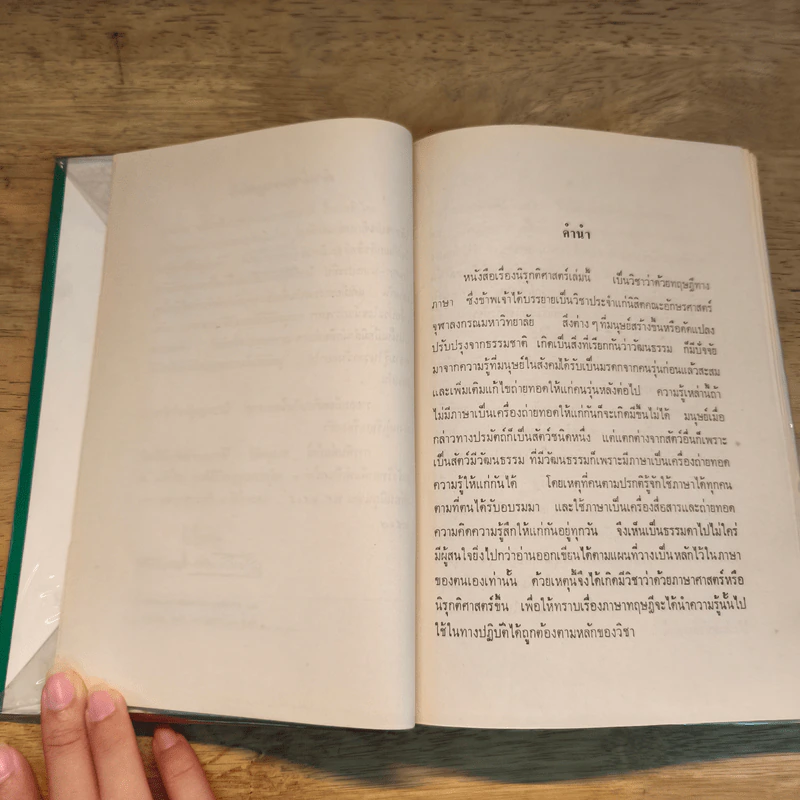 คำนำ
หนังสือเรื่องนิรุกติศาสตร์เล่มนี้ เป็นวิชาว่าด้วยทฤษฎีทาง
ภาษา ซึ่งข้าพเจ้าได้บรรยายเป็นวิชาประจำแก่นิสิตคณะอักษรศาสตร์
จุฬาลงกรณมหาวิทยาลัย สิ่งต่าง ๆ ที่มนุษย์สร้างขึ้นหรือดัดแปลง
ปรับปรุงจากธรรมชาติ เกิดเป็นสิ่งที่เรียกกันว่าวัฒนธรรม ก็มีปัจจัย
มาจากความรู้ที่มนุษย์ในสังคมได้รับเป็นมรดกจากคนรุ่นก่อนแล้วสะสม
และเพิ่มเติมแก้ไขถ่ายทอดให้แก่คนรุ่นหลังต่อไป ความรู้เหล่านี้ถ้า
ไม่มีภาษาเป็นเครื่องถ่ายทอดให้แก่กันก็จะเกิดมีขึ้นไม่ได้ มนุษย์เมื่อ
กล่าวทางปรมัตถ์ก็เป็นสัตว์ชนิดหนึ่ง แต่แตกต่างจากสัตว์อื่นก็เพราะ
เป็นสัตว์มีวัฒนธรรม ที่มีวัฒนธรรมก็เพราะมีภาษาเป็นเครื่องถ่ายทอด
ความรู้ให้แก่กันได้ โดยเหตุที่คนตามปรกติรู้จักใช้ภาษาได้ทุกคน
ตามที่ตนได้รับอบรมมา และใช้ภาษาเป็นเครื่องสื่อสารและถ่ายทอด
ความคิดความรู้สึกให้แก่กันอยู่ทุกวัน จึงเห็นเป็นธรรมดาไปไม่ใคร่
มีผู้สนใจยิ่งไปกว่าอ่านออกเขียนได้ตามแผนที่วางเป็นหลักไว้ในภาษา
ของตนเองเท่านั้น ด้วยเหตุนี้จึงได้เกิดมีวิชาว่าด้วยภาษาศาสตร์หรือ
นิรุกติศาสตร์ขึ้น เพื่อให้ทราบเรื่องภาษาทฤษฎีจะได้นำความรู้นั้นไป
ใช้ในทางปฏิบัติได้ถูกต้องตามหลักของวิชา